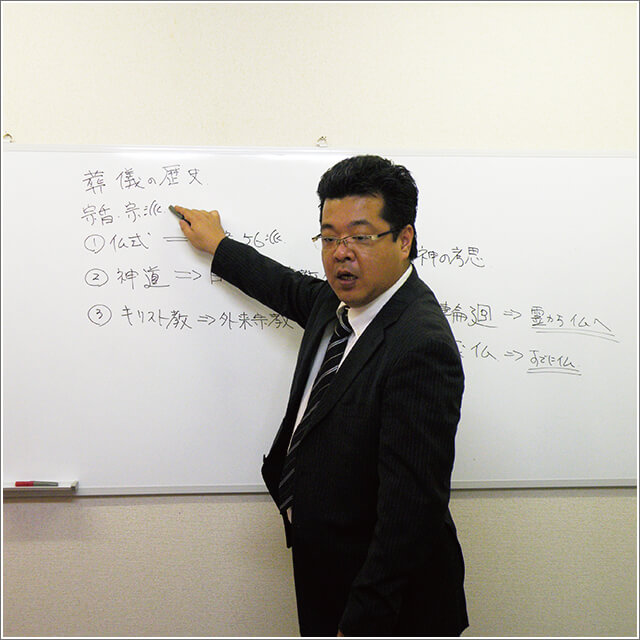 葬儀の歴史
宗旨・宗派
①仏式 ＝ 56派
②神道 ⇒
③キリスト教 ⇒ 外来宗教
神の意思
輪廻 ⇒ 霊から仏へ
仏 ⇒ すでに仏